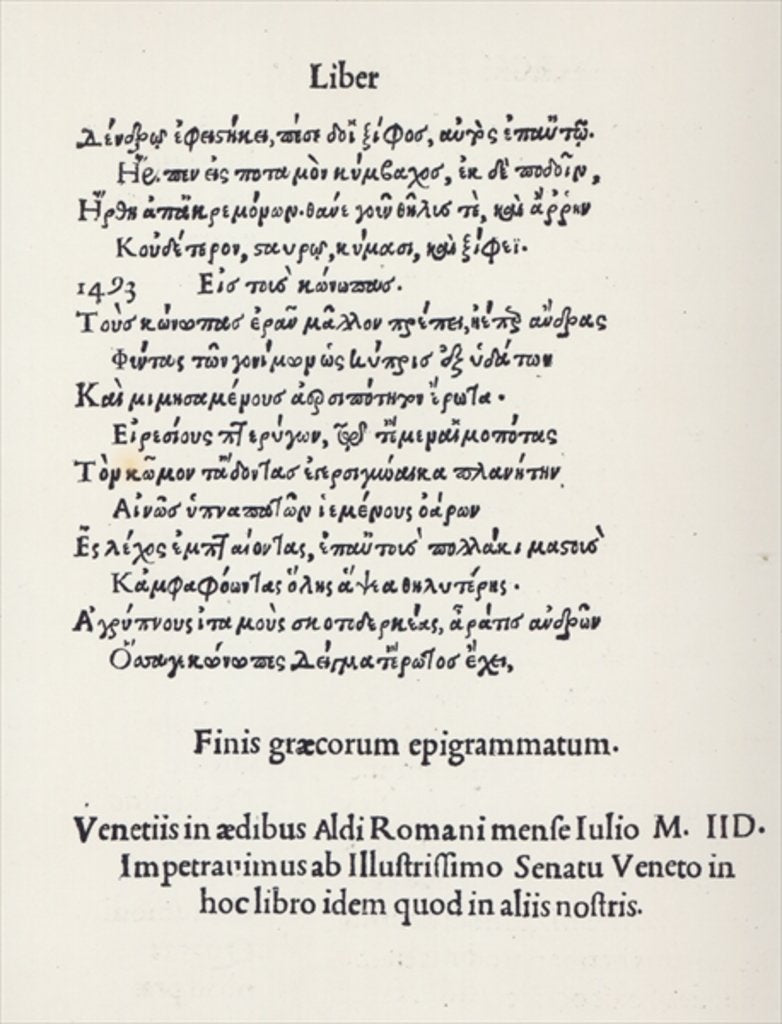 Liber
Δένδρῳ ἐφειστήκει, πέσε δοῖ ξίφος, αὐτὸς ἐπαὐτῷ.
Ηριπεν εἰς ποταμὸν κύμβαχος, ἐκ δὲ ποδοῖν,
Ηρθη ἀπ ἀκρεμόνων. θάνε γοῦν θῆλίς τὲ, καὶ ἄῤῥην
Κουδέτερον, σταυρῷ, κύμασι, καὶ ξίφεϊ.
1493 Εἰς τοὺς κώνωπας.
Τοὺς κώνωπας ἐρᾶν μᾶλλον πρέπει, ἠέπερ ἄνδρας
Φύντας τῶν γονίμων ὡς κύπρις ἐξ ὑδάτων
Καὶ μιμησαμένους ἀρσιπότητον ἔρωτα.
Εἰρεσίους πτερύγων,
Τὸν κῶμον τ' ᾄδοντας ἐπερσιγύναικα πλανήτην
Αἰνῶς ὑπναπατῶν ἱεμένους ὀάρων
Ες λέχος ἐμπταίοντας, ἐπαὐτοῖς πολλάκι μαστοῖς
Κἀμφαφόωντας ὅλης ἅψεα θηλυτέρης.
Αγρύπνους ἰταμοὺς σκοτιδερκέας, ἆρά τις ἀνδρῶν
Οσσαγε κώνωπες δεῖγματ' ἔρωτος ἔχει,
Finis græcorum epigrammatum.
Venetiis in ædibus Aldi Romani menſe Iulio M. IID.
Impetrauimus ab Illuſtriſſimo Senatu Veneto in
hoc libro idem quod in aliis noſtris.